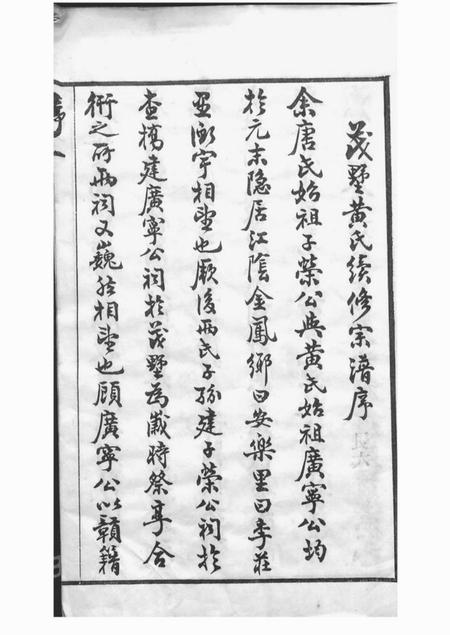 茂墅黃氏續修宗譜序
余唐氏始祖子榮公與黃氏始祖廣寧公均
於元末隐居江陰金鳳鄉曰安樂里曰李莊
衡宇相望也厥後兩氏子孫建子榮公祠於
查橋建廣寧公祠於茂墅為歲時祭享合
衍之所兩祠又巍然相望也顧廣寧公以贛籍